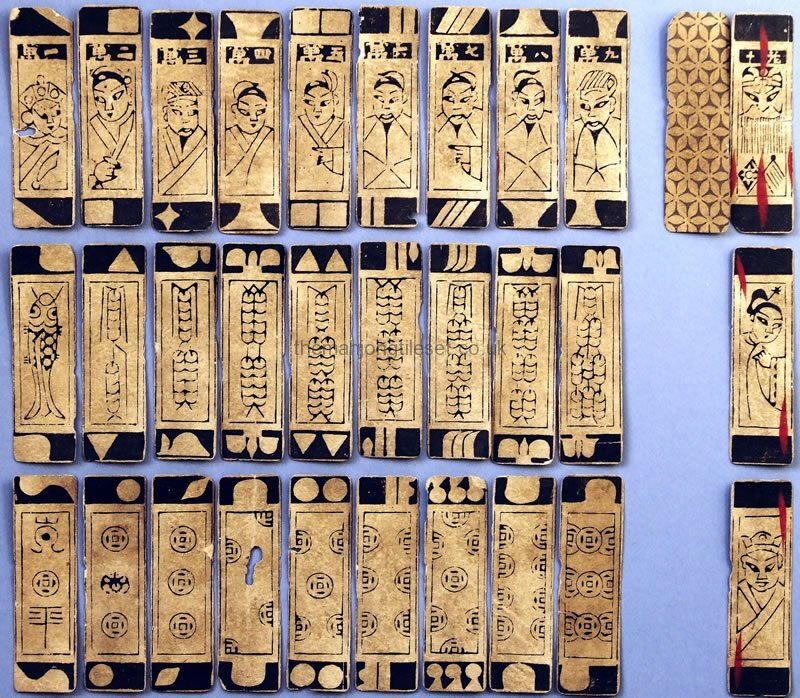 一萬
二萬
三萬
四萬
五萬
六萬
七萬
八萬
九萬
themahjongtileset.co.uk